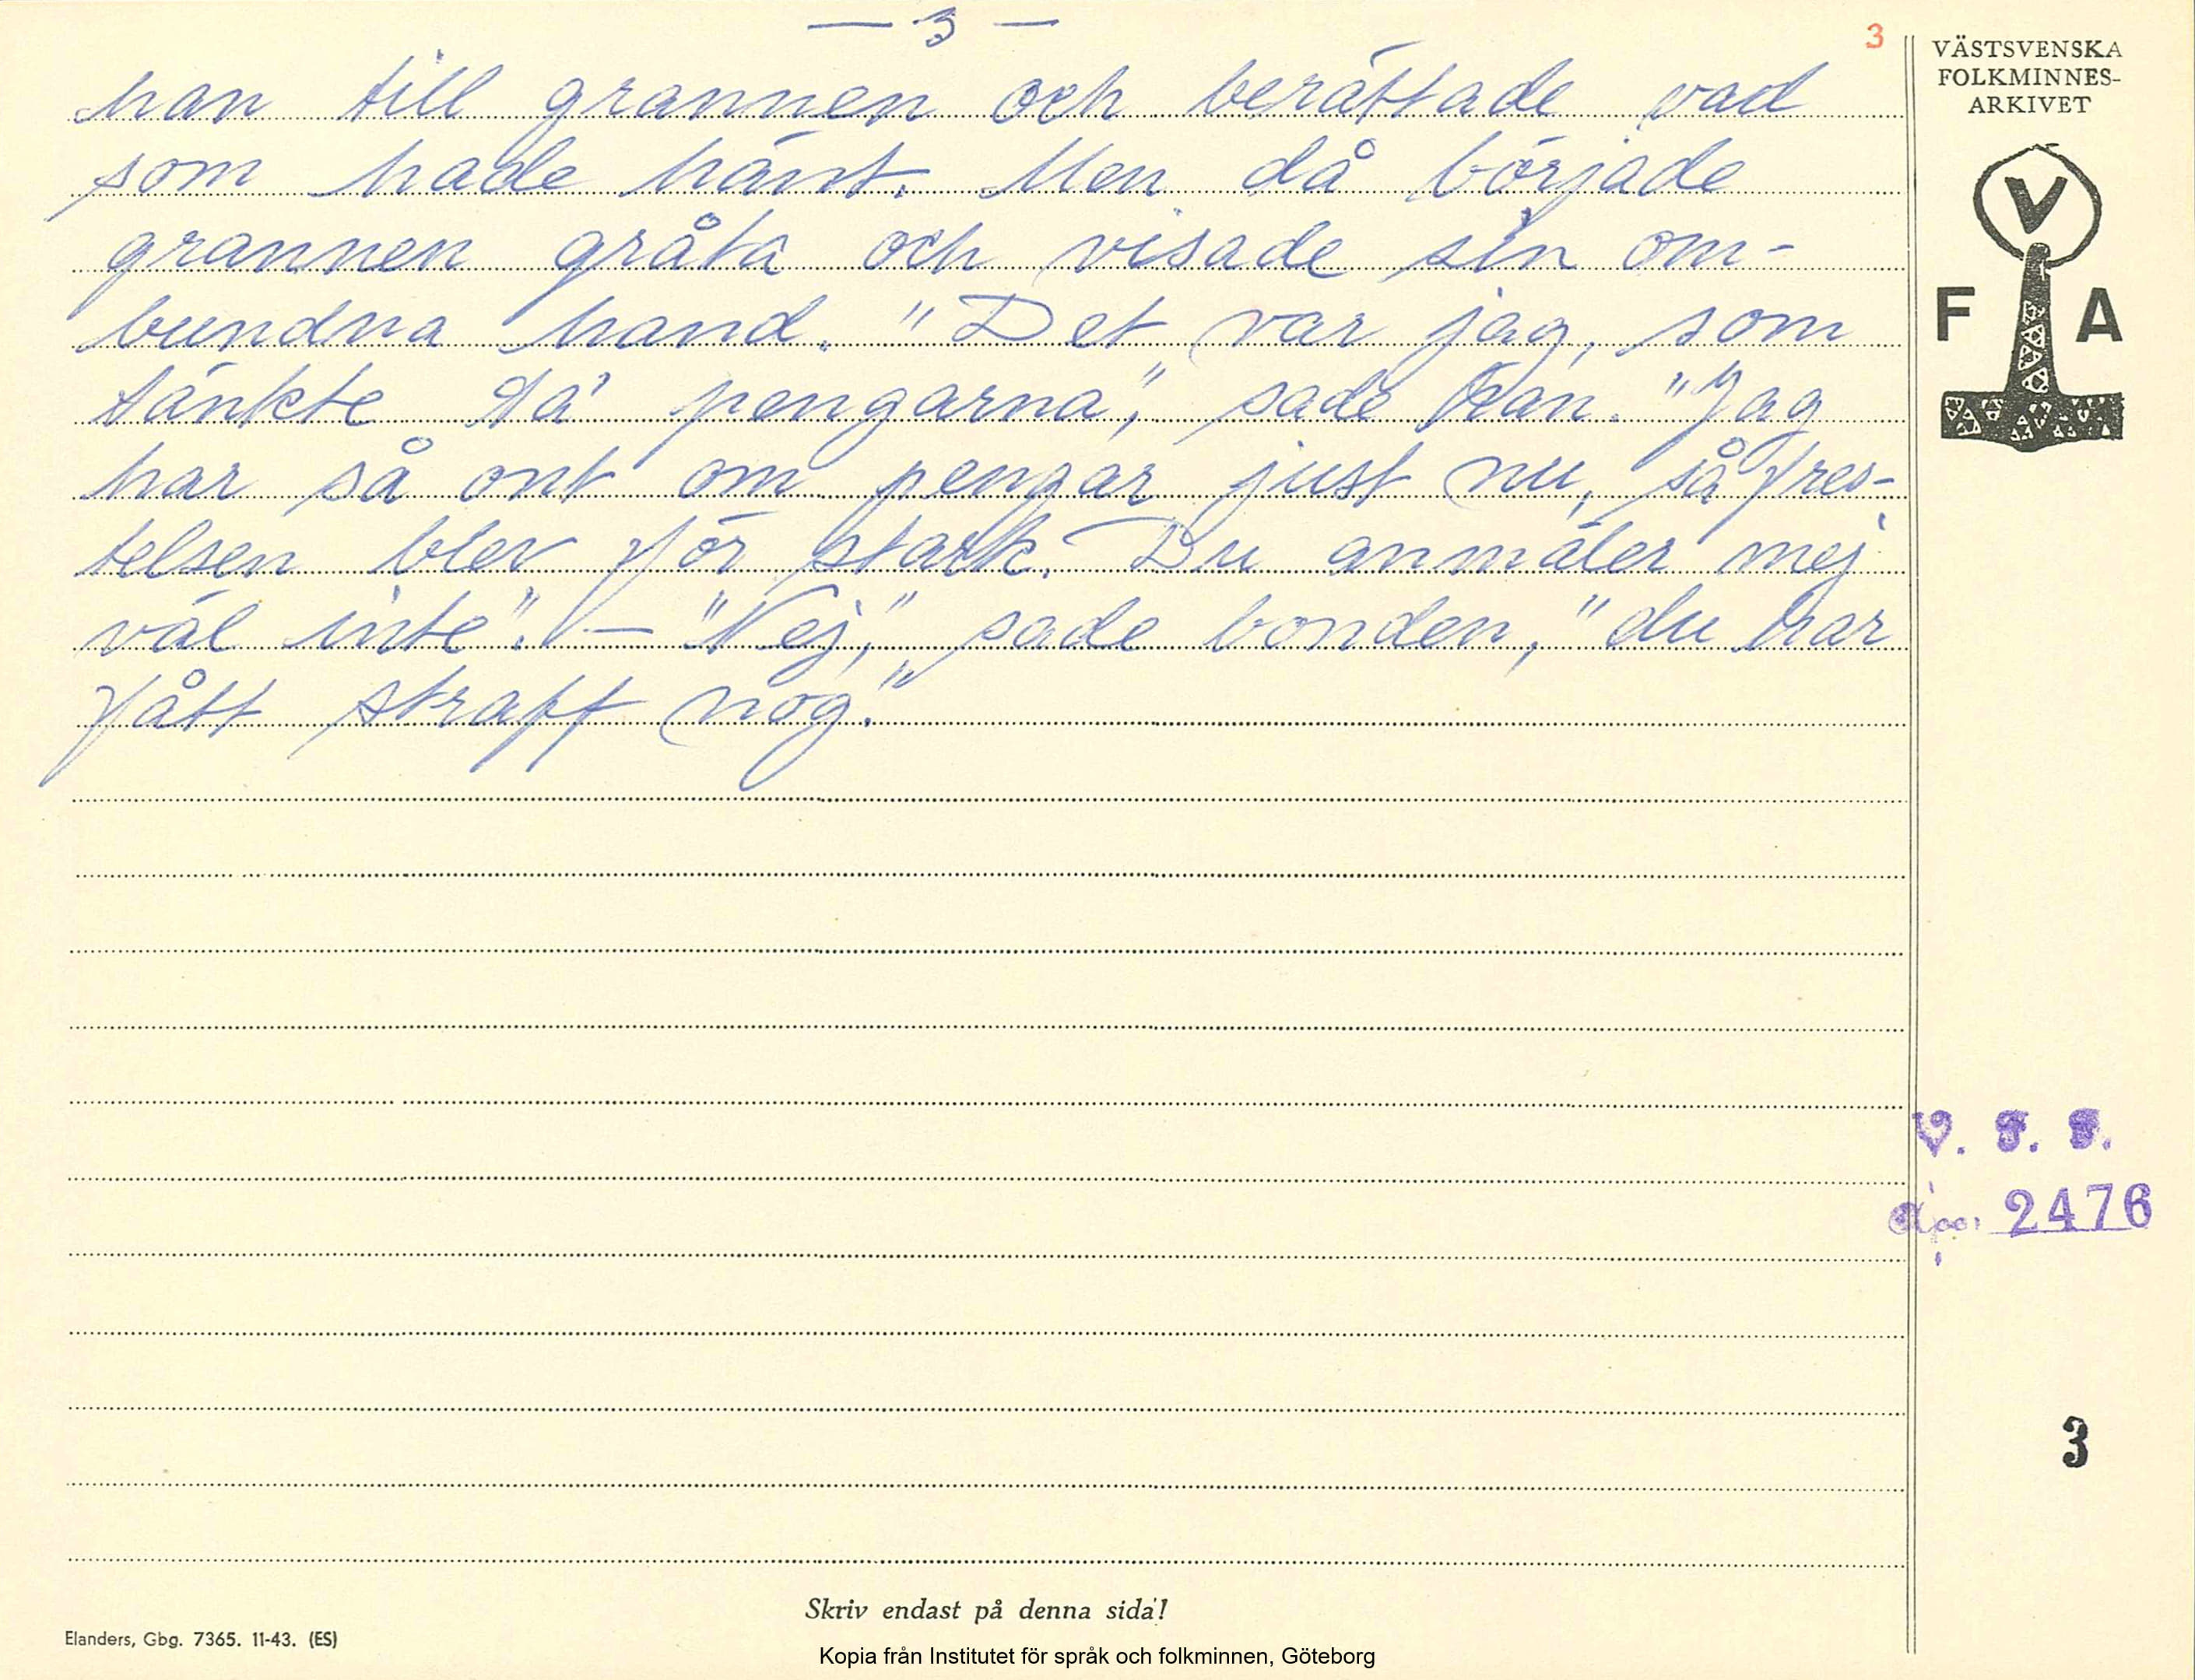 — 3 —
3
han till grannen och berättade vad
som hade hänt. Men då började
grannen gråta och visade sin om-
bundna hand. "Det var jag, som
tänkte ta' pengarna", sade han. "Jag
har så ont om pengar just nu, så fres-
telsen blev för stark. Du anmäler mej
väl inte". — "Nej," sade bonden, "du har
fått straff nog."
VÄSTSVENSKA
FOLKMINNES-
ARKIVET
V
F A
V. F. F.
2476
3
Skriv endast på denna sida!
Elanders, Gbg. 7365. 11-43. (ES)
Kopia från Institutet för språk och folkminnen, Göteborg